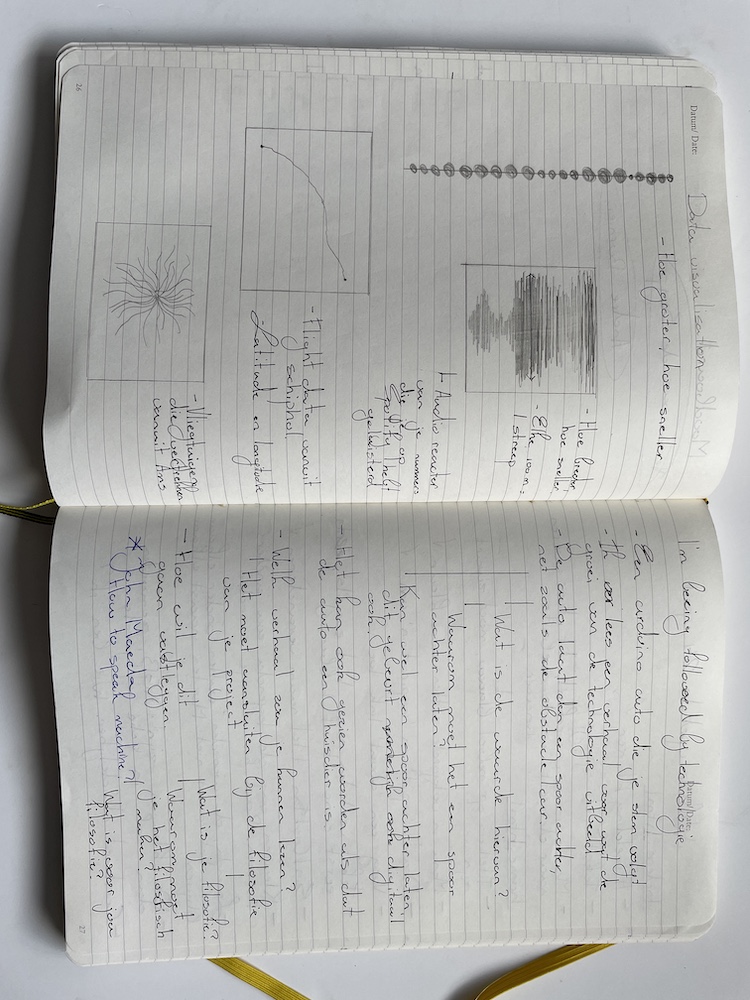 Datum/ Date:
Data visualisation
- Hoe groter, hoe sneller
- Hoe breder,
hoe sneller.
- Elke 100 m =
1 streep
Audio reacter
van je nummers
die je op
Spotify hebt
geluisterd
- Flight data vanuit
schiphol.
- Latitude en longitude
- Vliegtuigen
die vertrekken
vanuit Ams
26
Datum/ Date:
I'm beeing followed by technologie
- Een arduino auto die je stem volgt
- Ik lees een verhaal voor wat de
groei van de technologie uitbeeld
- De auto laat dan een spoor achter,
net zoals de obstacle car.
Wat is de waarde hiervan?
Waarom moet het een spoor
achter laten?
Kan wel een spoor achter laten,
dit gebeurt digitaal
ook.
- Het kan ook gezien worden als dat
de auto een huisdier is.
- Welk verhaal zou je kunnen lezen?
Het moet aansluiten bij de filosofie
van je project
Wat is je filosofie?
Waarom moet
je het filosofisch
maken?
Wat is voor jou
filosofie?
- Hoe wil je dit
gaan vastleggen.
* John Maeda
How to speak machine?
27